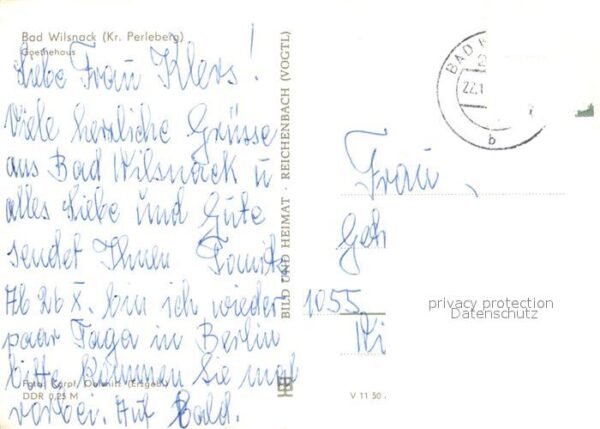 Bad Wilsnack (Kr. Perleberg)
Goethehaus
Liebe Frau Klers!
Viele herzliche Grüsse
aus Bad Wilsnack u
alles Liebe und Gute
sendet Ihnen
Ab 26 X. bin ich wieder
paar Tage in Berlin
bitte kommen Sie mal
vorbei. Auf Bald.
Foto: Karpf, (Erzgeb.)
DDR 0,25 M
BILD UND HEIMAT · REICHENBACH (VOGTL)
BAD
22.1
b
Frau
Geh
1055
privacy protection
Datenschutz
V 11 50